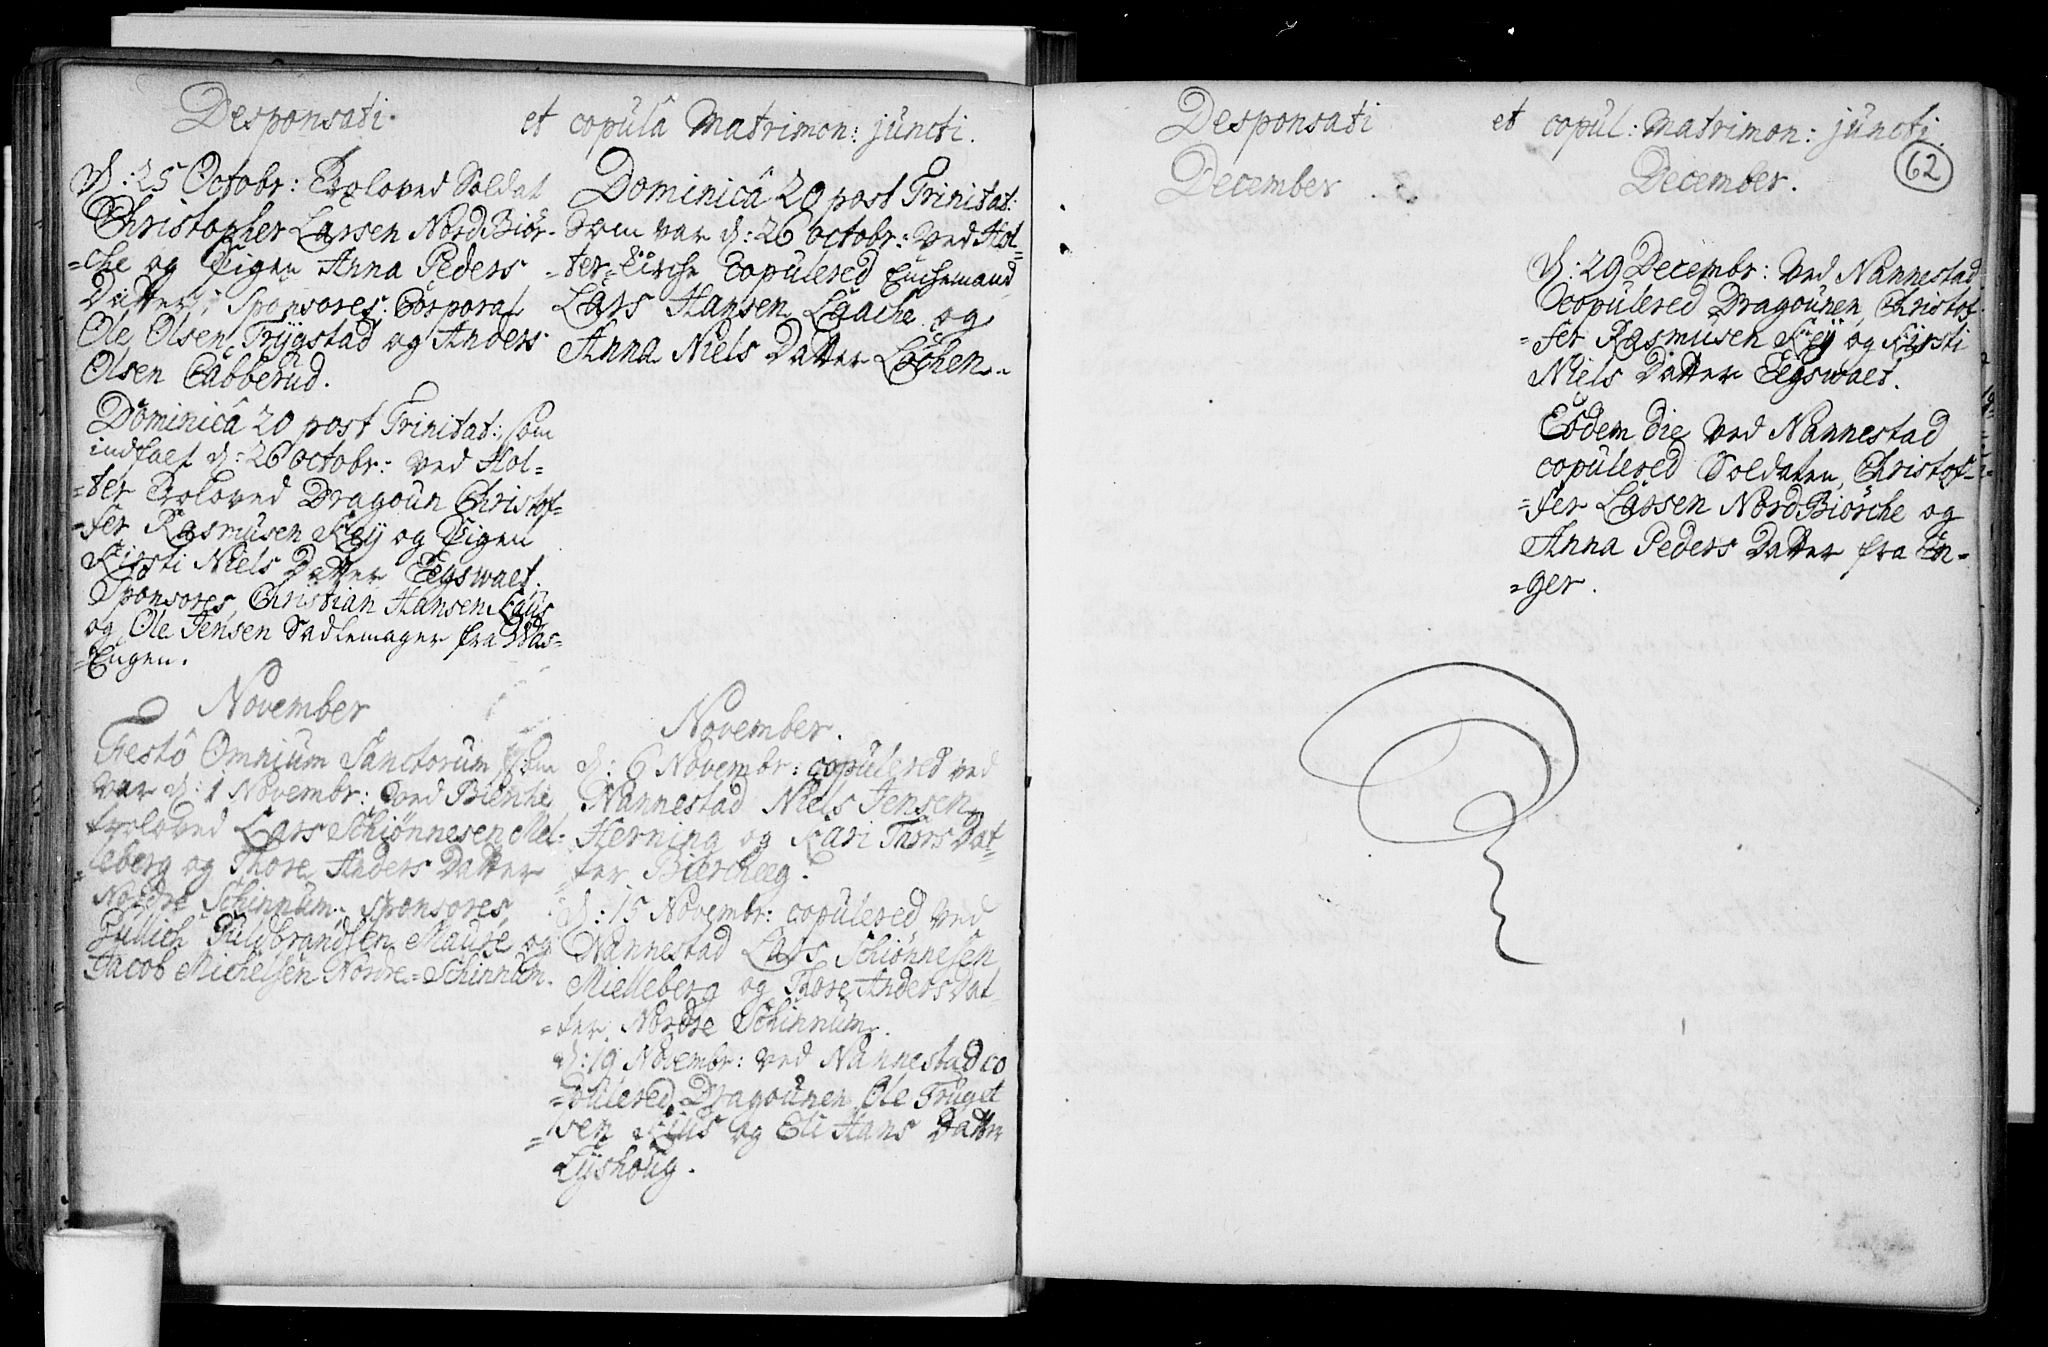 Desponsati et copulâ Matrimon: juncti.
D: 25 Octobr: Troloved Soldat
Christopher Larsen NordBiör-
=che og Pigen Anna Peders
Datter, Sponsores, Corporal
Ole Olsen Trÿgstad og Anders
Olsen Cabberud.
Dominicâ 20 post Trinitat: som
indfalt d: 26 octobr: ved Hol=
=ter Troloved Dragoun Christof=
=fer Rasmusen Ley og Pigen
Kirsti Niels Datter Eegswaet.
Sponsores, Christian Hansen
og Ole Jensen Sadlemager fra Was-
=Engen.
November
Festô Omnium Sanctorum som
var d: 1 Novembr: ved Bierche
troloved Lars Schiönnesen Mel-
=leberg og Thore Anders Datter
Nordre Schinnum. sponsores,
Gullich Guldbrandsen Maure og
Jacob Michelsen Nordre=Schinnum.
Dominicâ 20 post Trinitat:
Som var d: 26 octobr: ved Hol=
=ter=Kirche Copulered Enchemand
Lars Hansen Laache og
Anna Niels Datter Löchen.
November.
d: 6 Novembr: copulered ved
Nannestad Niels Jensen
Herning og Kari Thors Dat=
=ter Biercheeg.
d: 15 Novembr: copulered ved
Nannestad Lars Schiönnesen
Mielleberg og Thore Anders Dat-
=ter Nordre Schinnum.
d: 19 Novembr: ved Nannestad co
=pulered Dragounen Ole Truget
=sen og Eli Hans Datter
Lÿshoug.
Desponsati et copul: Matrimon: juncti.
62
December December.
d: 29 Decembr: ved Nannestad
Copulered Dragounen, Christof-
=fer Rasmusen Ley og Kirsti
Niels Datter Eegswaet.
Eodem die ved Nannestad
copulered Soldaten, Christof-
=fer Larsen NordBiörche og
Anna Peders Datter fra En-
=ger.